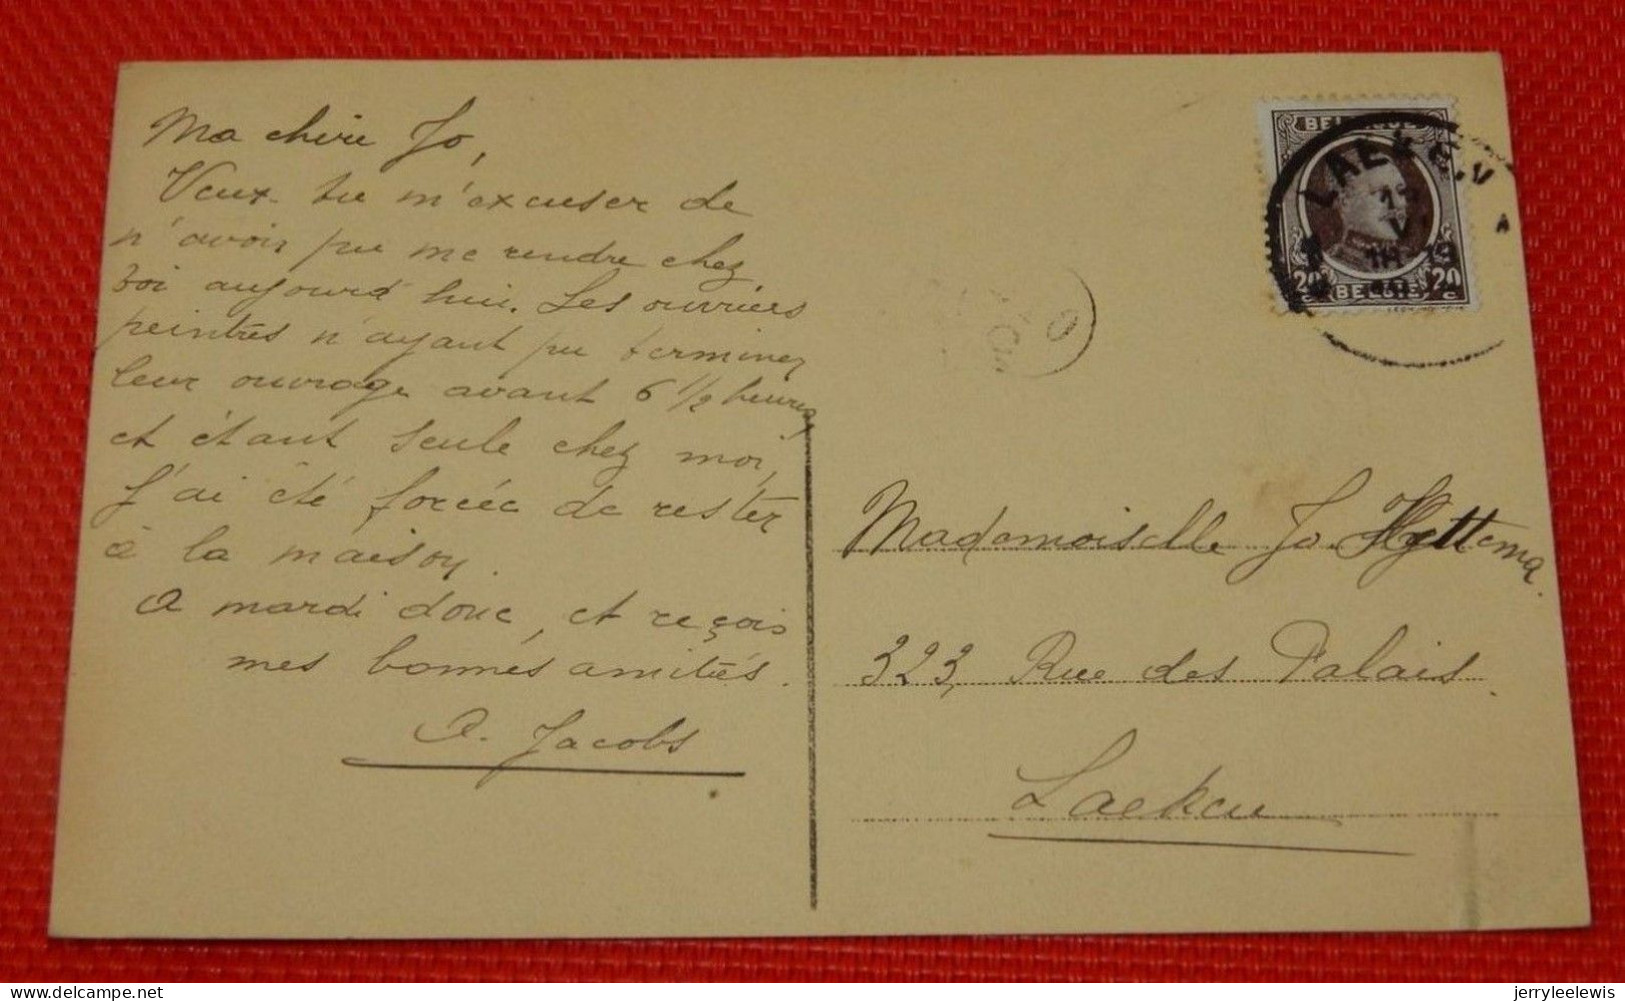 Ma chérie Jo,
Veux-tu m'excuser de
n'avoir pu me rendre chez
toi aujourd'hui. Les ouvriers
peintres n'ayant pu terminer
leur ouvrage avant 6 1/2 heures
et étant seule chez moi,
j'ai été forcée de rester
à la maison.
A mardi donc, et reçois
mes bonnes amitiés.
A. Jacobs
BELGIQUE
LAEKEN
20 20
BELGIË
Mademoiselle Jo. Hyttema.
323, Rue des Palais.
Laeken
delcampe.net
jerryleelewis